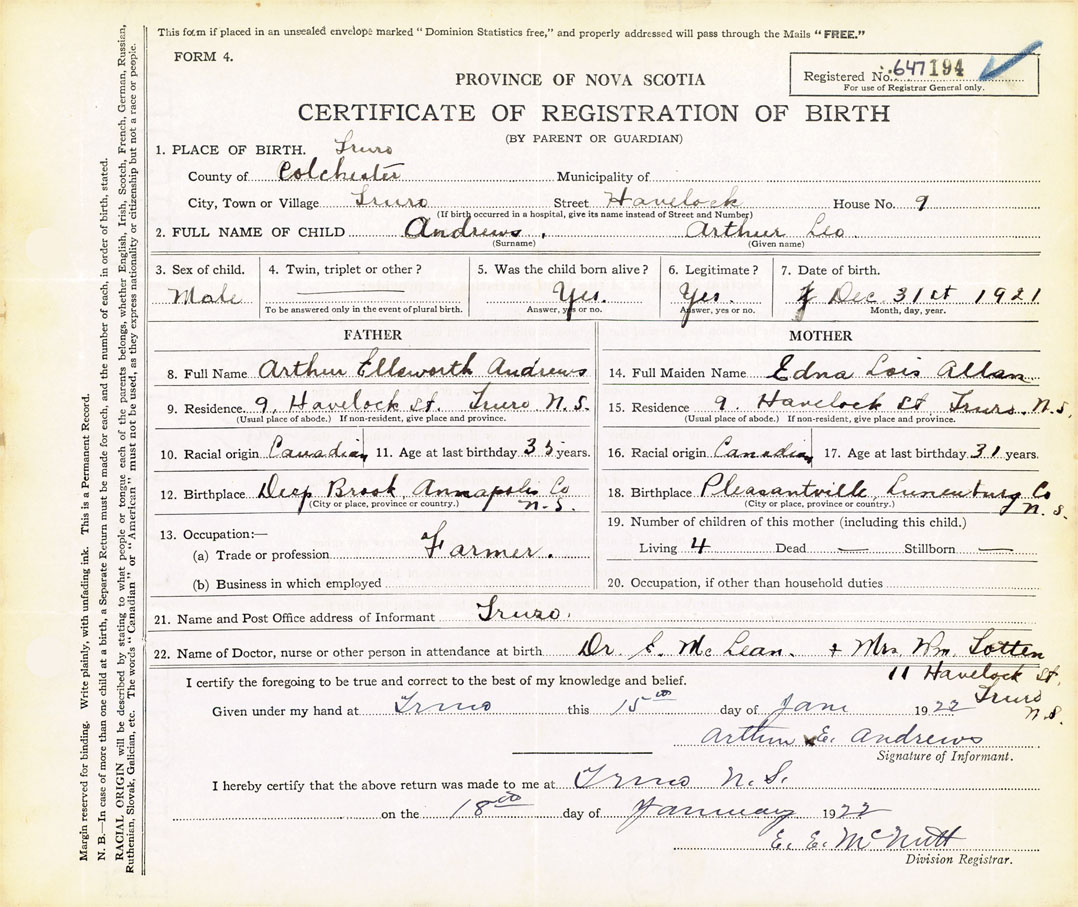 This form if placed in an unsealed envelope marked "Dominion Statistics free," and properly addressed will pass through the Mails "FREE."
FORM 4.
Registered No. 647194
For use of Registrar General only.
PROVINCE OF NOVA SCOTIA
CERTIFICATE OF REGISTRATION OF BIRTH
(BY PARENT OR GUARDIAN)
1. PLACE OF BIRTH. Truro
County of Colchester Municipality of
City, Town or Village Truro Street Havelock House No. 9
(If birth occurred in a hospital, give its name instead of Street and Number)
2. FULL NAME OF CHILD Andrews, Arthur Leo
(Surname) (Given name)
3. Sex of child. 4. Twin, triplet or other? 5. Was the child born alive? 6. Legitimate? 7. Date of birth.
Male — Yes. Yes. Dec. 31st 1921
To be answered only in the event of plural birth. Answer, yes or no. Answer, yes or no. Month, day, year.
FATHER MOTHER
8. Full Name Arthur Ellsworth Andrews 14. Full Maiden Name Edna Lois Allan
9. Residence 9, Havelock St. Truro N.S. 15. Residence 9. Havelock St, Truro. N.S.
(Usual place of abode.) If non-resident, give place and province. (Usual place of abode.) If non-resident, give place and province.
10. Racial origin Canadian 11. Age at last birthday 35 years. 16. Racial origin Canadian 17. Age at last birthday 31 years.
12. Birthplace Deep Brook, Annapolis Co N.S. 18. Birthplace Pleasantville, Lunenburg Co N.S.
(City or place, province or country.) (City or place, province or country.)
13. Occupation:— 19. Number of children of this mother (including this child.)
(a) Trade or profession Farmer. Living 4 Dead — Stillborn —
(b) Business in which employed 20. Occupation, if other than household duties
21. Name and Post Office address of Informant Truro.
22. Name of Doctor, nurse or other person in attendance at birth Dr. McLean. + Mrs Wm. Totten
11 Havelock St,
Truro
N.S.
I certify the foregoing to be true and correct to the best of my knowledge and belief.
Given under my hand at Truro this 15th day of Jan 1922
Arthur E. Andrews
Signature of Informant.
I hereby certify that the above return was made to me at Truro N.S.
on the 18th day of January 1922
E. E. McNutt
Division Registrar.
Margin reserved for binding. Write plainly, with unfading ink. This is a Permanent Record.
N. B.—In case of more than one child at a birth, a Separate Return must be made for each, and the number of each, in order of birth, stated.
RACIAL ORIGIN will be described by stating to what people or tongue each of the parents belongs, whether English, Irish, Scotch, French, German, Russian,
Ruthenian, Slovak, Galician, etc. The words "Canadian" or "American" must not be used, as they express nationality or citizenship but not a race or people.